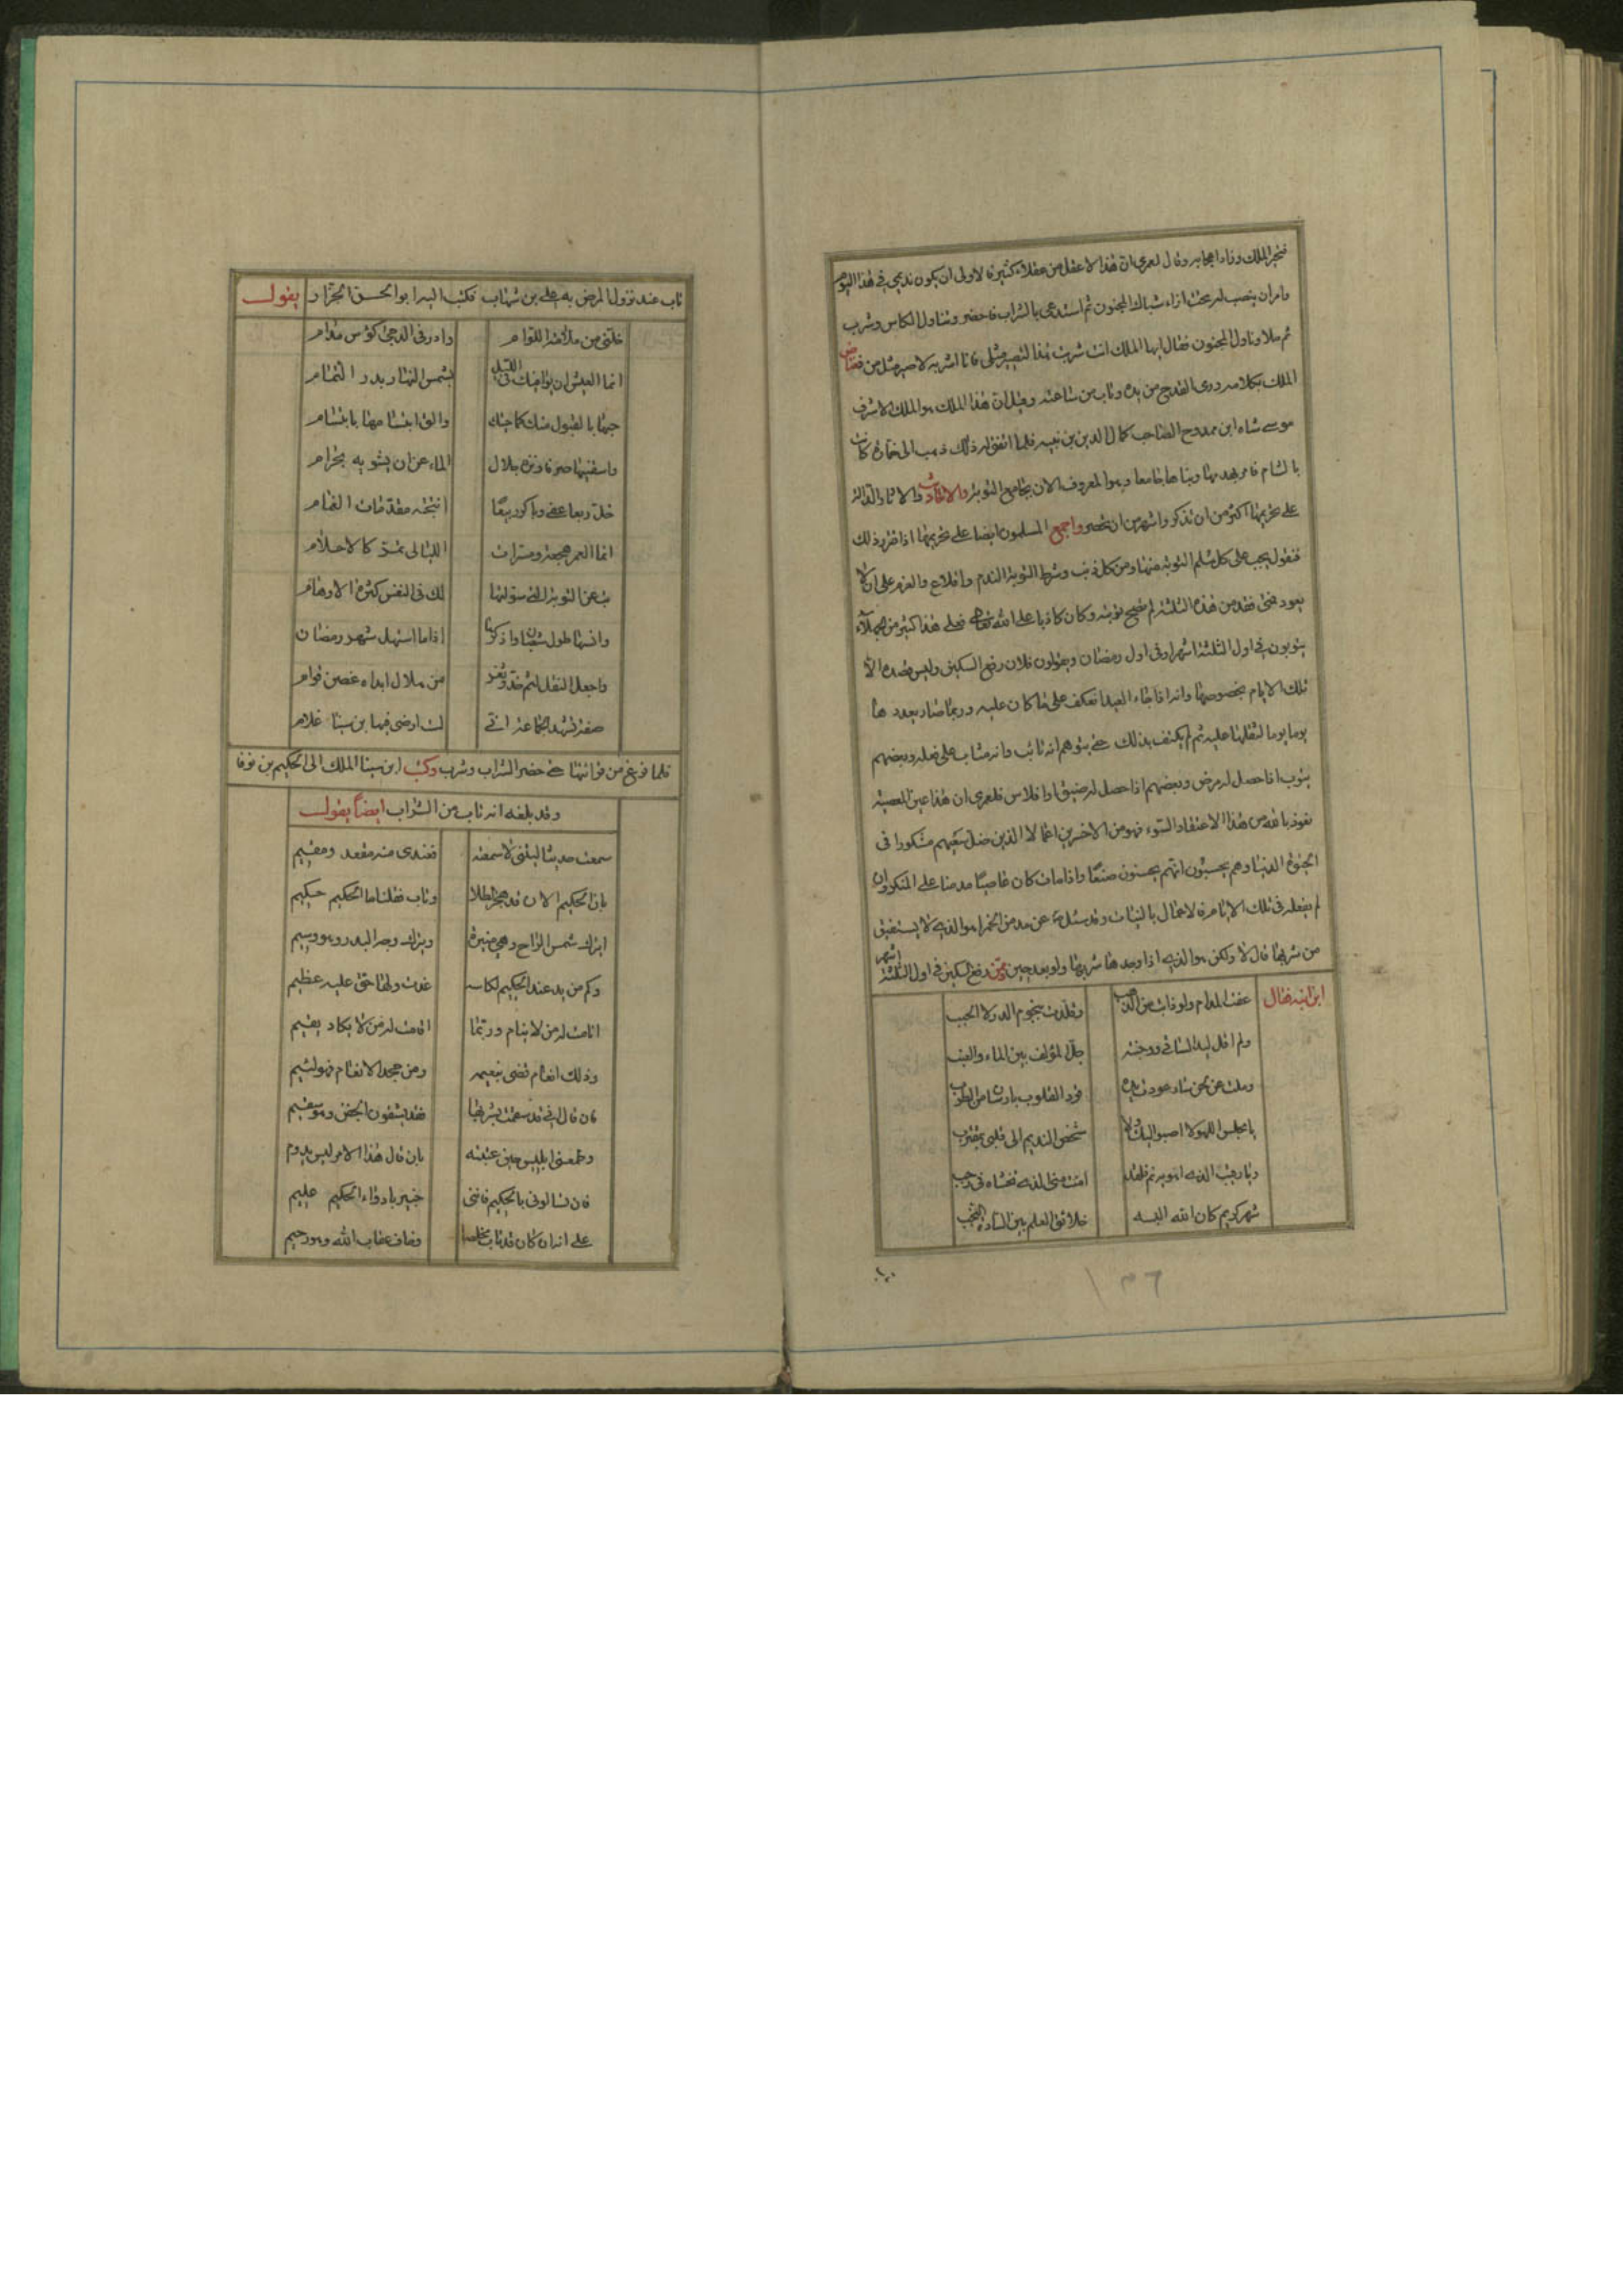 فتحير الملك وزاد اعجابه وقال لعمري ان هذا لاعقل من عقلاء كثيرة فالاولى ان يكون نديمي في هذا اليوم
وامر ان ينصب له تخت ازاء شباك المجنون ثم استدعى بالشراب فاحضر وتناول الكاس وشرب
ثم ملا وناول المجنون فقال ايها الملك انت شربت هذا لتصير مثلي فانا اشربه لاصير مثل من
الملك بكلامه ورمى القدح من يده وتاب من ساعته وقيل ان هذا الملك هو الملك الاشرف
موسى شاه ابن ممدوح الصاحب كمال الدين بن نبيه فلما اتفق له ذلك ذهب الى خمارة كانت
بالشام فامر بهدمها وبناها جامعا وهو المعروف الان بجامع التوبة والاحاديث والاثار الدالة
على تحريمها اكثر من ان تذكر واشهر من ان تحصر واجمع المسلمون ايضا على تحريمها اذا تقرر ذلك
فنقول يجب على كل مسلم التوبة منها ومن كل ذنب وشرط التوبة الندم والاقلاع والعزم على ان لا
يعود فمتى فقد من هذه الثلثة لم تصح توبته وكان كاذبا على الله تعالى فعلى هذا كثير من الجهلاء
يتوبون في اول الثلثة اشهر او في اول رمضان ويقولون فلان رفع السكين وليس قصده الا
تلك الايام بخصوصها وانه اذا جاء العيد انعكف على ما كان عليه وربما صار يعدد ها
يوما يوما لثقلها عليه ثم لم يكتف بذلك حتى يتوهم انه تائب وانه مثاب على فعله وبعضهم
يتوب اذا حصل له مرض وبعضهم اذا حصل له ضيق او افلاس فلعمري ان هذا عين المعصية
نعوذ بالله من هذا الاعتقاد السوء فهو من الاخسرين اعمالا الذين ضل سعيهم مشكورا في
الحيوة الدنيا وهم يحسبون انهم يحسنون صنعا واذا مات كان عاصيا مدمنا على المنكر وان
لم يفعله في تلك الايام فالاعمال بالنيات وقد سئل عن مدمن الخمر اهو الذي لا يستفيق
من شربها قال لا ولكن هو الذي اذا وجدها شربها ولو بعد حين وممن رفع السكين في اول الثلثة اشهر
ابن نبيه فقال
عفت المدام ولو فاتت من الذهب
وقلدت بنجوم الدر لا الحبب
ولم اقل ليد الساقي ووجنته
جل المؤلف بين الماء واللهب
وملت عن لحن شاد عودت يده
فرد القلوب باوتار من الطرب
يا مجلس اللهو لا اصبو اليك ولا
شخص النديم الى قلبي بمقترب
ويا ربيب الذي اهويه نم فلقد
امنت مني الذي تخشاه في رجب
شهر كريم كان الله البسه
خلائق العلم بين السادة النجب
١٣٦
تاب عند نزول المرض به علي بن شهاب فكتب اليه ابو الحسن الجزار يقول
خلني من ملامة اللوام
وادر في الدجى كؤس مدام
انما العيش ان يوافيك في الليل
بشمس النهار بدر التمام
حيها بالقبول منك كما حيك
والق ابتسامها بابتسام
واسقنيها صرفا ونزه حلال
الماء عن ان يشوبه بحرام
خل ربعا عفى وباكر ربيعا
انتجته مقدمات الغمام
انما العمر هجعة ومسرات
الليالي تمر كالاحلام
تب عن التوبة التي سولتها
لك في النفس كثرة الاوهام
وانسها طول شعبان واذكرها
اذا ما استهل شهر رمضان
واجعل النقل لثم خد وثغر
من هلال ابداه غصن قوام
صفة تشهد الجماعة اني
لست ارضى فيها بن سينا غلام
فلما فرغ من قرائتها حتى حضر الشراب وشرب وكتب ابن سينا الملك الى الحكيم بن نوفا
وقد بلغه انه تاب من الشراب ايضا يقول
سمعت حديثا ليتني لا سمعته
فعندي منه مقعد ومقيم
بان الحكيم الان قد هجر الطلا
وتاب فقلنا ما الحكيم حكيم
ايترك شمس الراح وهي منيرة
ويترك وجه البدر وهو وسيم
وكم من يد عند الحكيم لكاسه
غدت ولها حق عليه عظيم
انامت له من لا ينام وربما
اقامت له من لا يكاد يقيم
وذلك انعام قضى بنعيمه
ومن جحد الانعام فهو لئيم
فان قال اني قد سقمت بشربها
فقد يشفون الجفن وهو سقيم
وطمعنى ابليس حين عتبته
بان قال هذا الامر ليس يدوم
فان تسالوني بالحكيم فانني
خبير بادواء الحكيم عليم
على انه ان كان قد تاب مخلصا
وخاف عقاب الله وهو رحيم